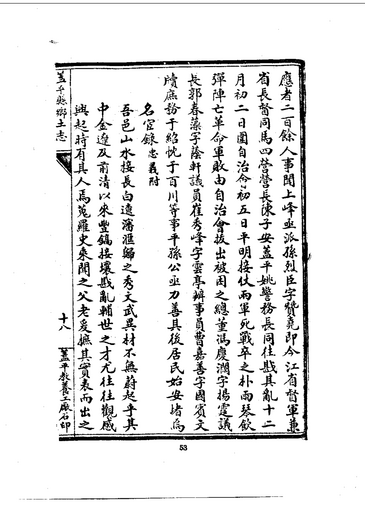 應者二百餘人事聞上峰亟派孫烈臣字贊堯即今江省督軍兼
省長督同馬四營營長陳子安蓋平姚警務長同往戡其亂十二
月初二日圍自治會初五日平明接仗兩軍死戰卒之朴雨琴飲
彈陣亡革命軍敗由自治會拔出被困之總董馮慶瀾字揚霆議
長郭春藻字蔭軒議員崔秀峰字雲亭辦事員曹嘉善字國賓文
牘庶務于紹忱于百川等事平孫公亟力善其後居民始安堵焉
名宦錄忠義附
吾邑山水接長白遼瀋滙歸之秀文武異材不無蔚起乎其
中金遼及前清以來豐鎬接壤戡亂輔世之才尤往往觀感
興起特有其人焉蒐羅史乘聞之父老爰撫其實表而出之
蓋平縣鄉土志
十八
蓋平教養工廠石印
53